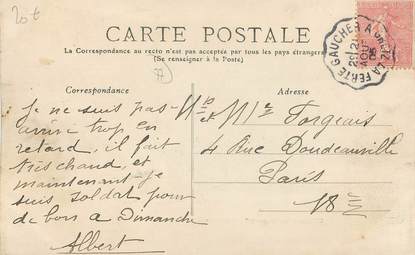 20t
CARTE POSTALE
La Correspondance au recto n'est pas acceptée par tous les pays étrangers
(Se renseigner à la Poste)
77
Correspondance
Je ne suis pas
arrivé trop en
retard, il fait
très chaud, et
maintenant je
suis soldat pour
de bon à Dimanche
Albert
Adresse
et Mr Forgeais
4 Rue Doudeauville
Paris
18e
LA FERTE GAUCHER A
21
AOUT
05